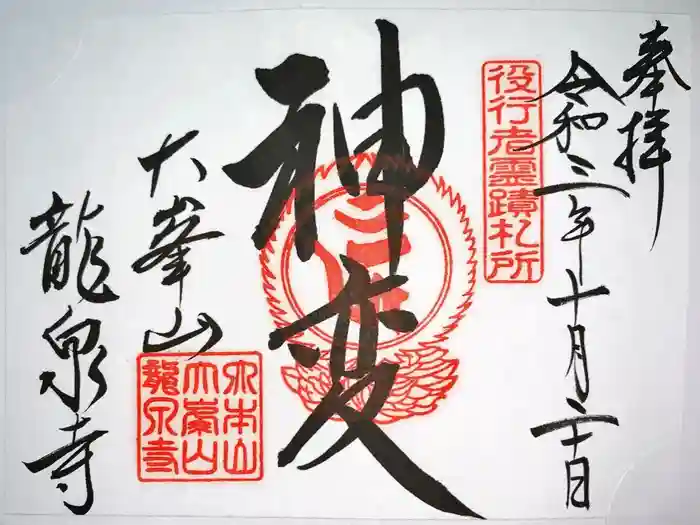 奉拝
令和三年十月二十日
役行者霊蹟札所
神変
大峯山
龍泉寺
大本山
大峯山
龍泉寺